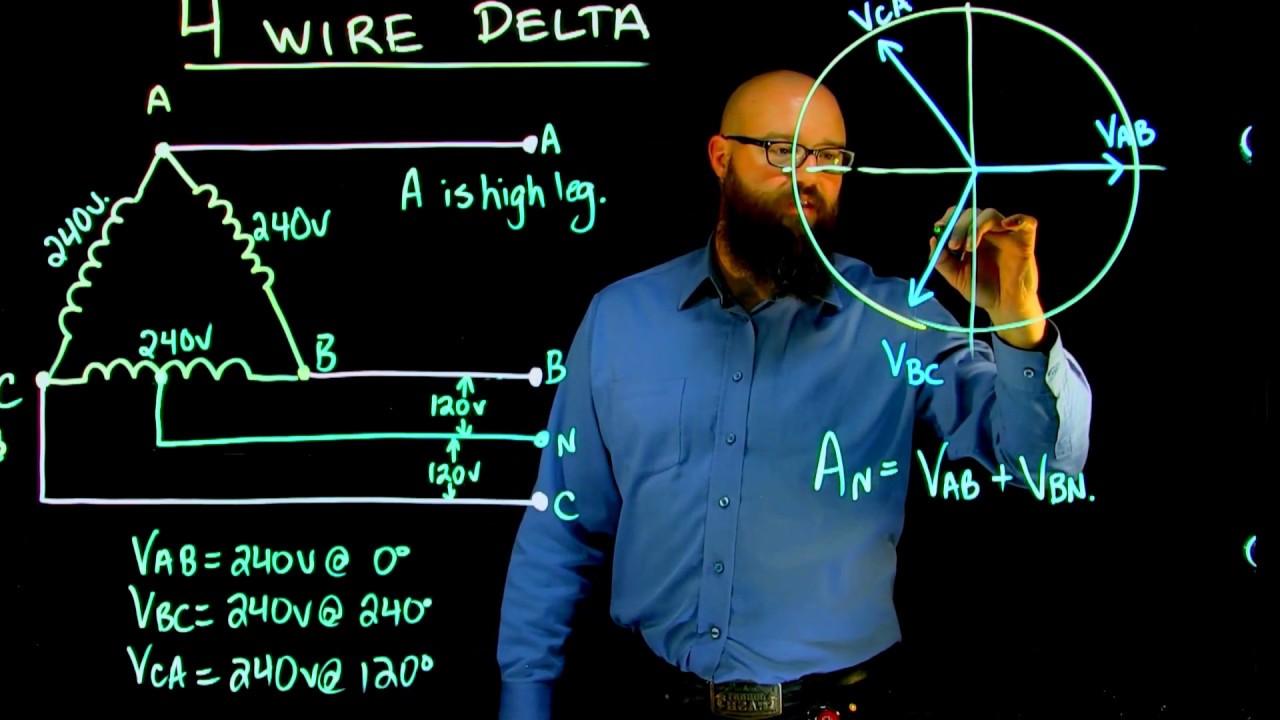 4 WIRE DELTA
A
A
A is high leg.
240v.
240v
240v
C
B
B
120v
N
120v
C
VAB = 240v @ 0°
VBC = 240v @ 240°
VCA = 240v @ 120°
VCA
VAB
VBC
AN = VAB + VBN.